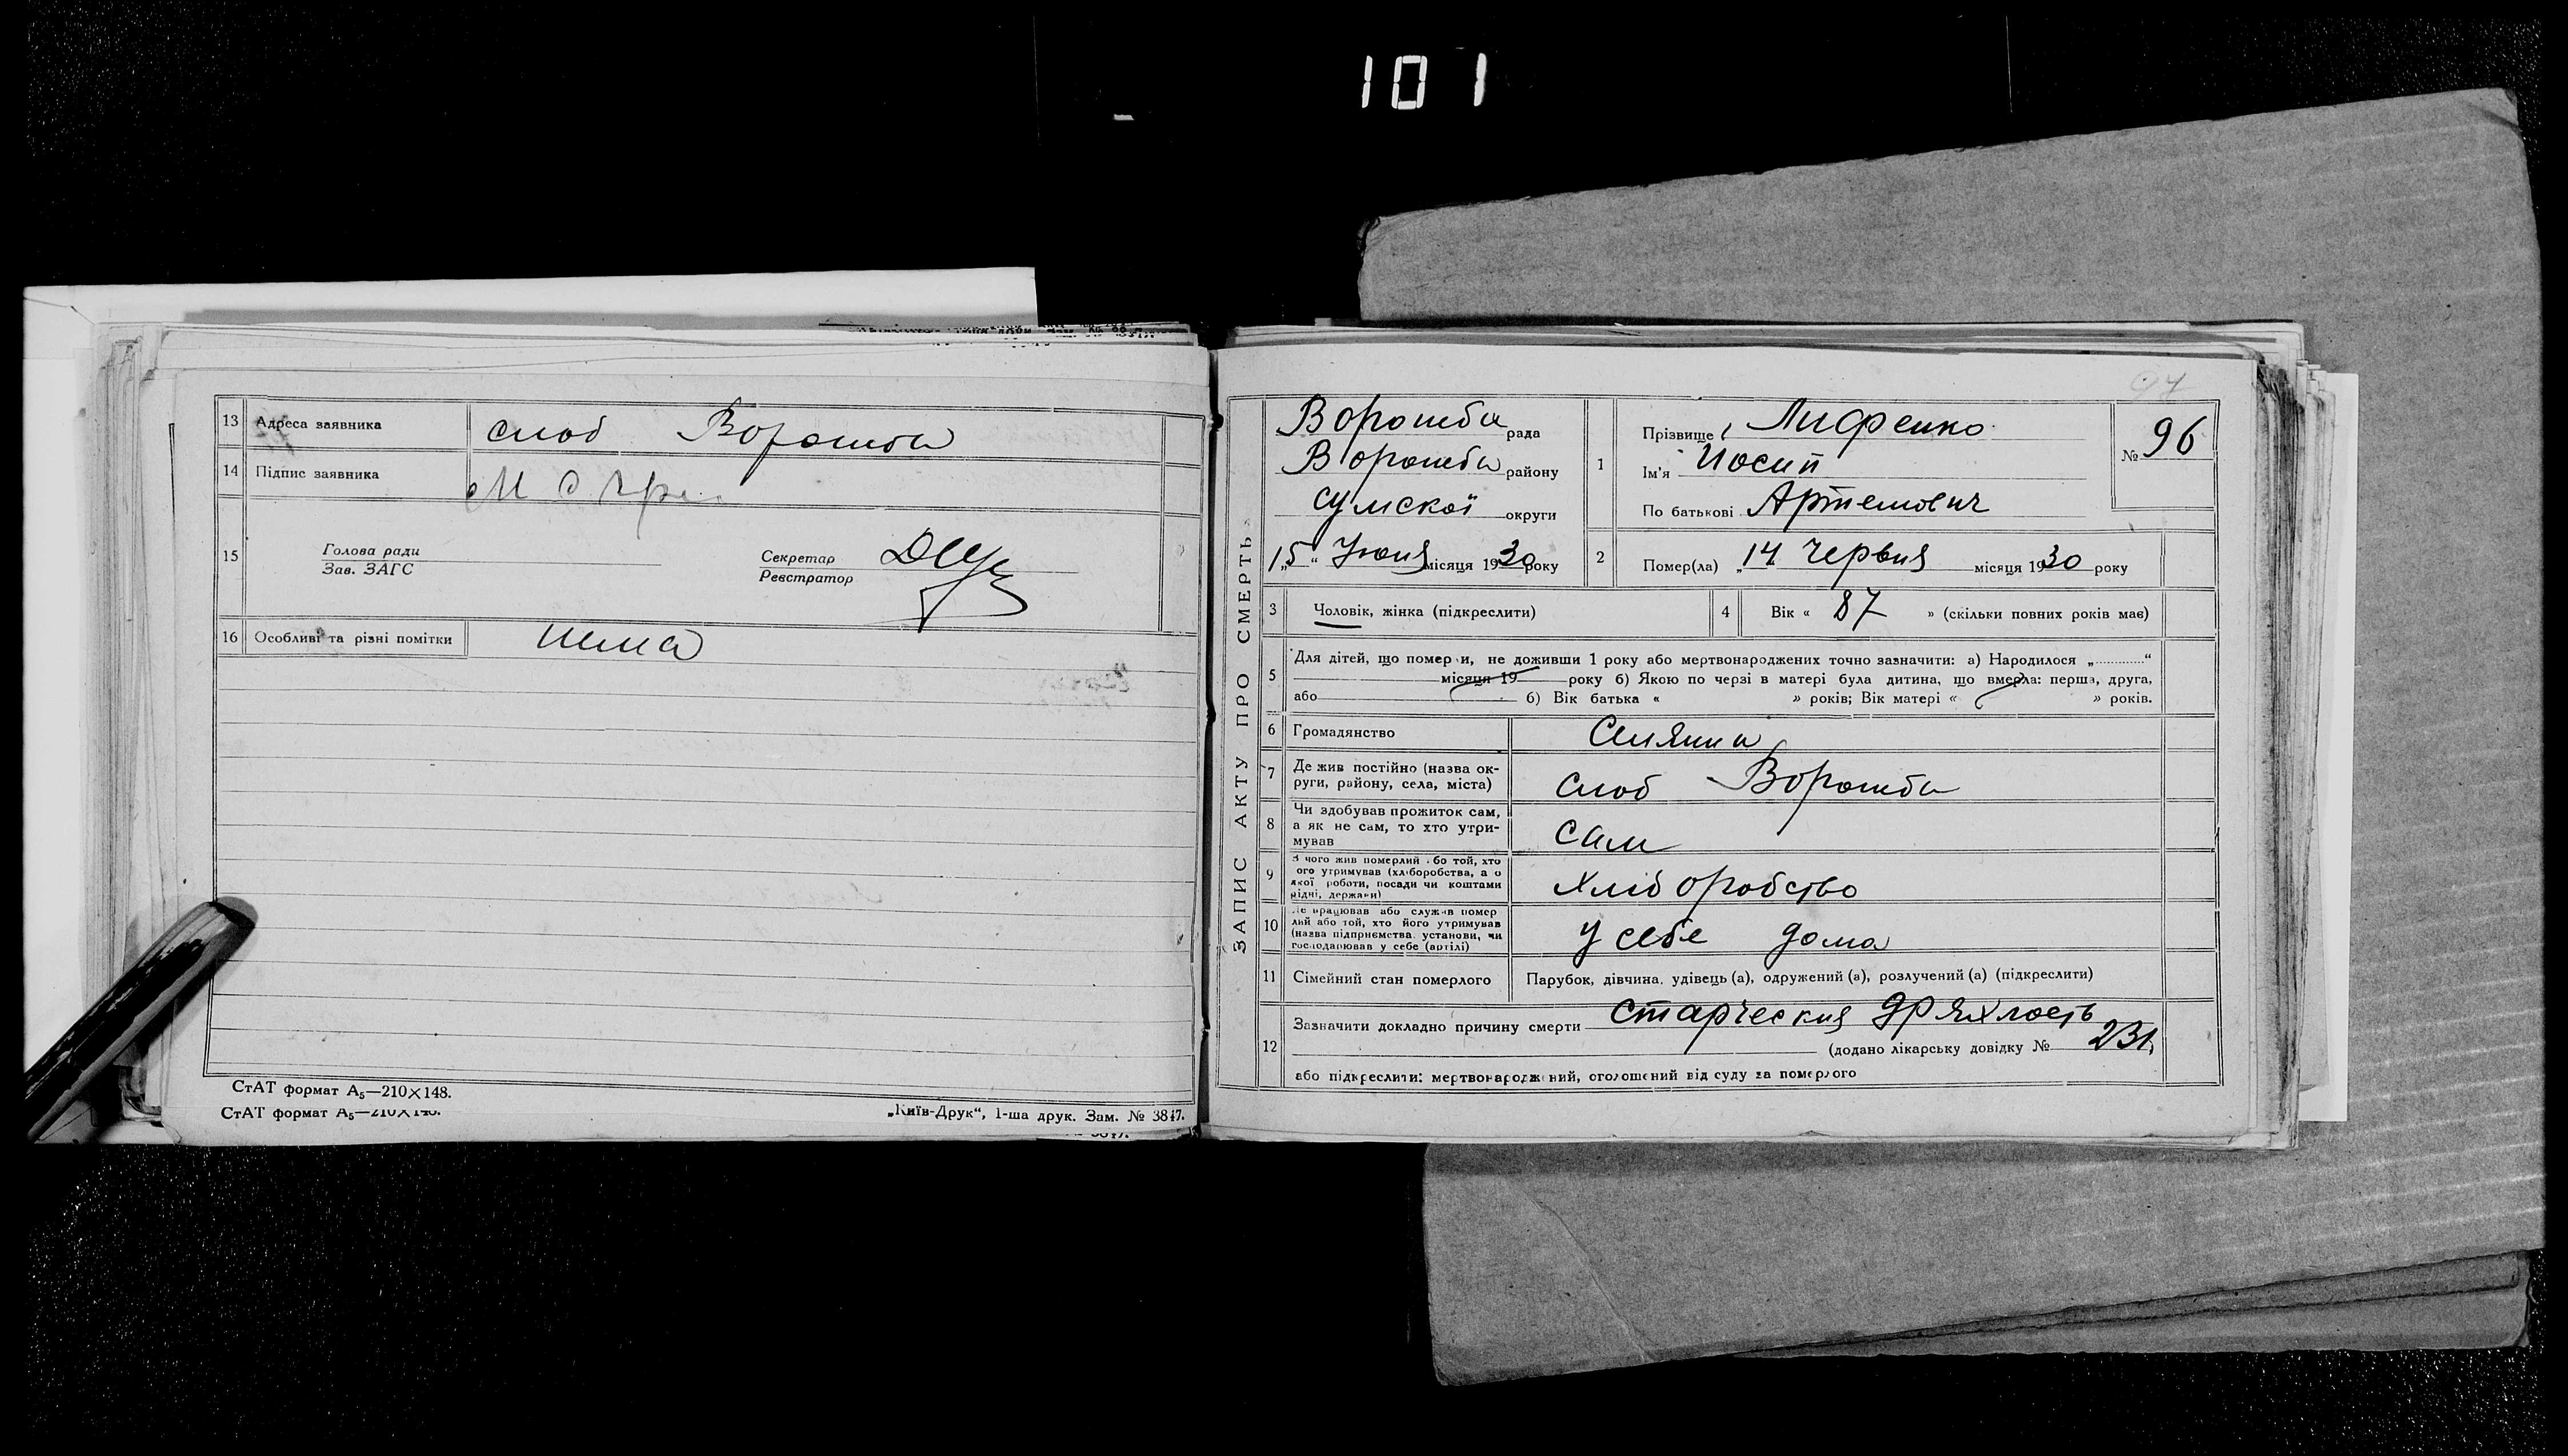 101
13 Адреса заявника слоб Ворожба
14 Підпис заявника
15 Голова ради
Зав. ЗАГС
Секретар
Реєстратор
16 Особливі та різні помітки нема
СтАТ формат А₅—210×148.
СтАТ формат А₅—210×148.
„Київ-Друк“, 1-ша друк. Зам. № 3847.
97
ЗАПИС АКТУ ПРО СМЕРТЬ
Ворожба рада
Ворожба району
Сумской округи
„15“ Июня місяця 1930 року
1 Прізвище Лифенко
Ім'я Иосип
По батькові Артемович
№ 96
2 Помер(ла) „14 Червня місяця 1930 року
3 Чоловік, жінка (підкреслити)
4 Вік « 87 » (скільки повних років має)
5 Для дітей, що померли, не доживши 1 року або мертвонароджених точно зазначити: а) Народилося „............“
місяця 19 року б) Якою по черзі в матері була дитина, що вмерла: перша, друга,
або б) Вік батька « » років; Вік матері « » років.
6 Громадянство Селянин
7 Де жив постійно (назва ок-
руги, району, села, міста) слоб Ворожба
8 Чи здобував прожиток сам,
а як не сам, то хто утри-
мував сам
9 З чого жив померлий або той, хто
його утримував (хліборобства, а о
якої роботи, посади чи коштами
рідні, держави) Хліборобство
10 Де працював або служив помер
лий або той, хто його утримував
(назва підприємства, установи, чи
господарював у себе (артілі) у себе дома
11 Сімейний стан померлого Парубок, дівчина, удівець(а), одружений(а), розлучений(а) (підкреслити)
12 Зазначити докладно причину смерти Старческия дряхлость
(додано лікарську довідку № 231
або підкреслити: мертвонароджений, оголошений від суду за померлого